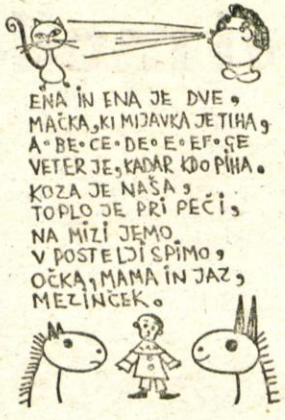 ENA IN ENA JE DVE,
MAČKA, KI MIJAVKA JE TIHA,
A·BE·CE·DE·E·EF·GE
VETER JE, KADAR KDO PIHA.
KOZA JE NAŠA,
TOPLO JE PRI PEČI,
NA MIZI JEMO,
V POSTELJI SPIMO,
OČKA, MAMA IN JAZ,
MEZINČEK.